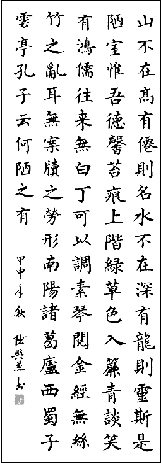 山不在高有僊則名水不在深有龍則靈斯是
陋室惟吾德馨苔痕上階綠草色入簾青談笑
有鴻儒往來無白丁可以調素琴閱金經無絲
竹之亂耳無案牘之勞形南陽諸葛廬西蜀子
雲亭孔子云何陋之有
甲申年秋